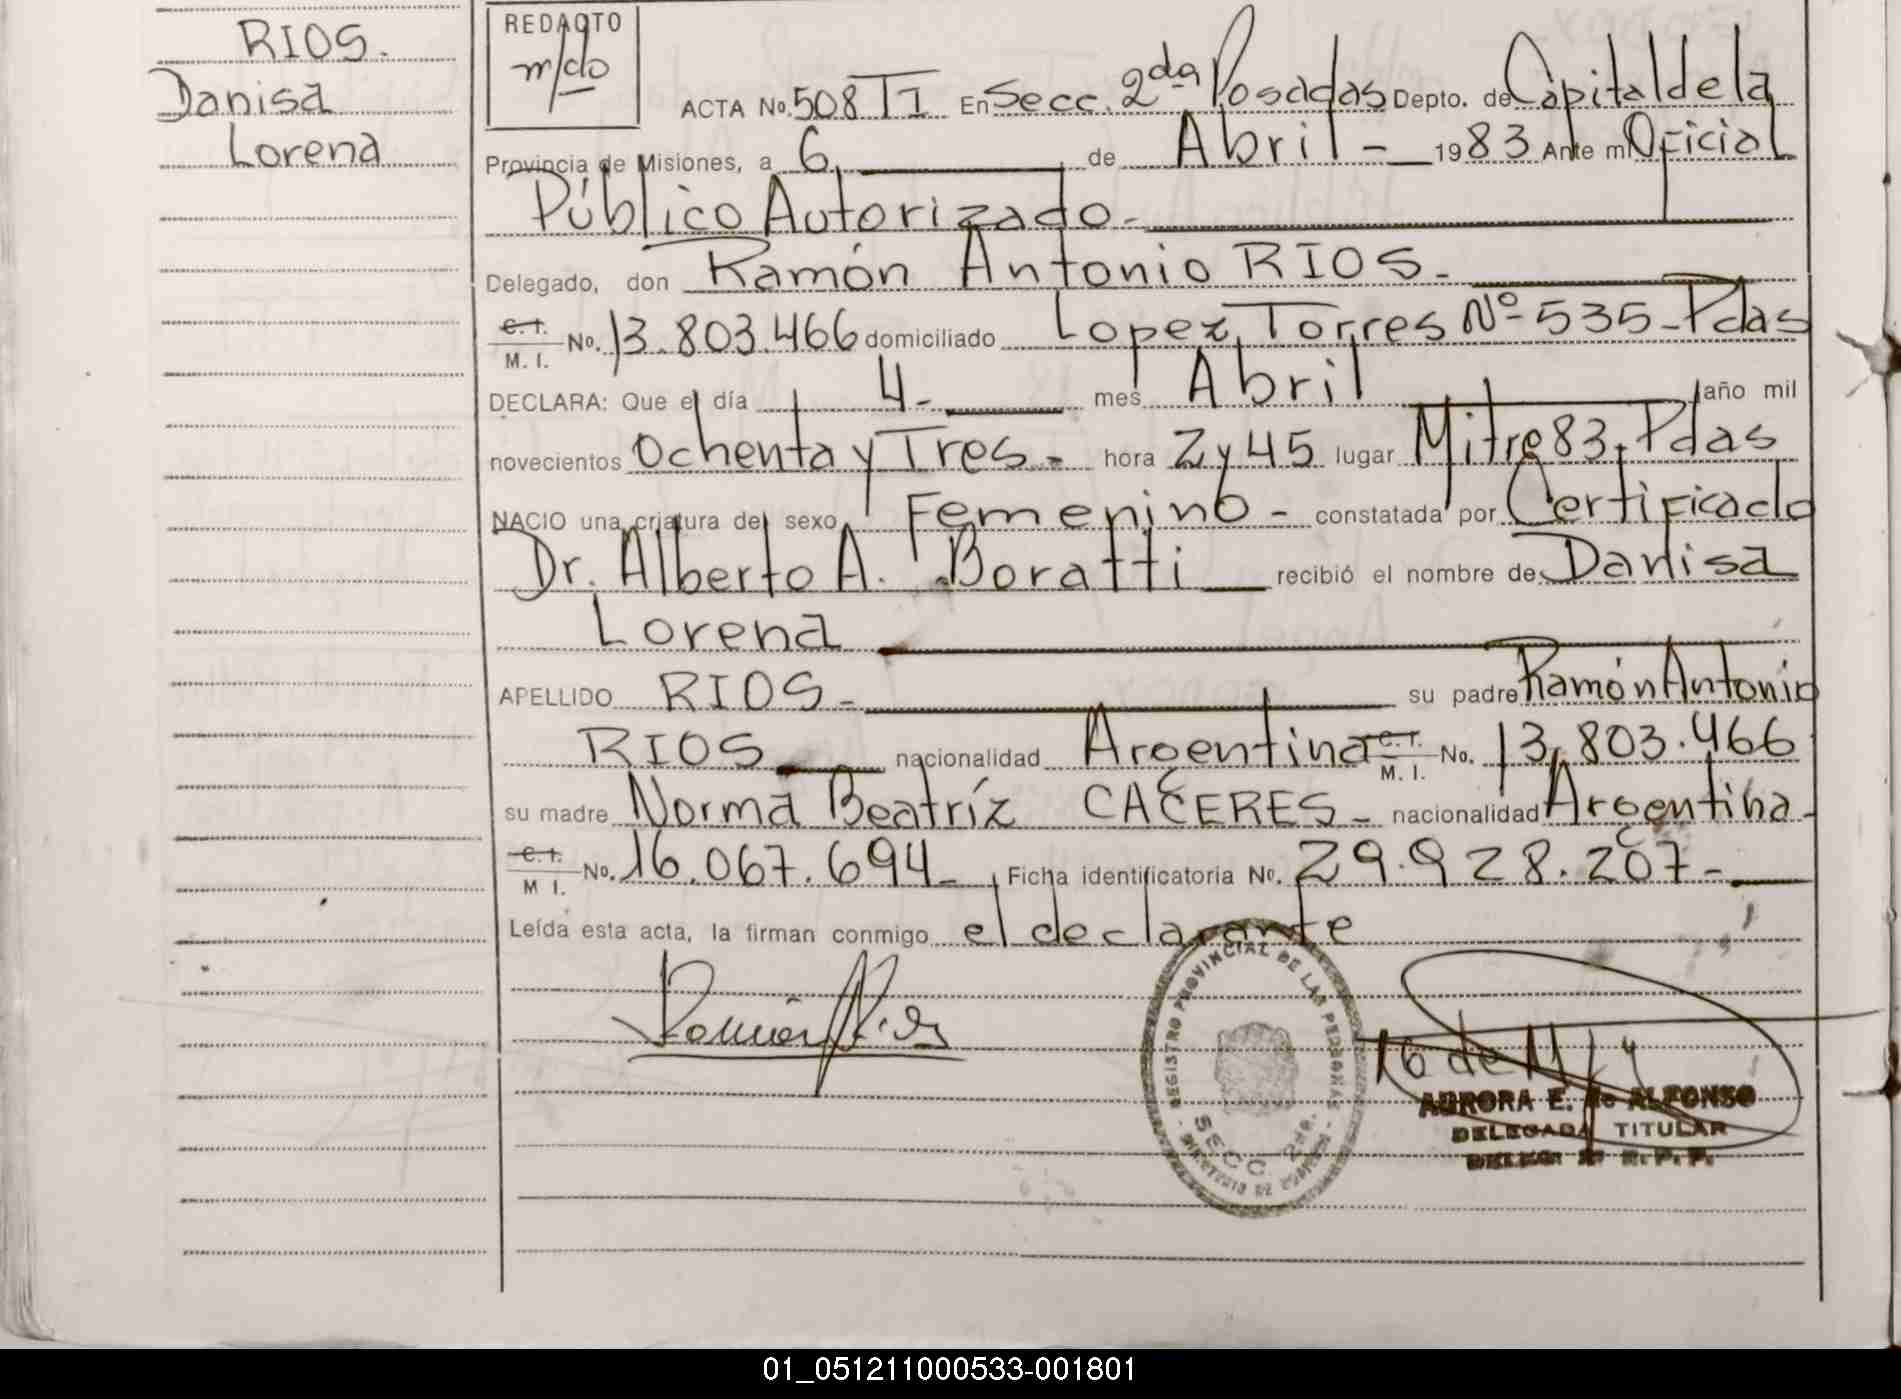 RIOS.
Danisa
Lorena
REDACTO
m/do
ACTA No. 508 T1 En Secc. 2da Posadas Depto. de Capital de la
Provincia de Misiones, a 6 de Abril - 1983 Ante mi Oficial
Público Autorizado.-
Delegado, don Ramón Antonio RIOS.-
C. I.
M. I. No. 13.803.466 domiciliado Lopez Torres Nº 535-Pdas
DECLARA: Que el día 4- mes Abril año mil
novecientos Ochenta y Tres.- hora 2 y 45 lugar Mitre 83. Pdas
NACIO una criatura del sexo Femenino - constatada por Certificado
Dr. Alberto A. Boratti recibió el nombre de Danisa
Lorena
APELLIDO RIOS.- su padre Ramón Antonio
RIOS nacionalidad Argentina C. I.
M. I. No. 13.803.466
su madre Norma Beatríz CACERES- nacionalidad Argentina-
C. I.
M I. No. 16.067.694- Ficha identificatoria No. 29.928.207-
Leída esta acta, la firman conmigo el declarante
REGISTRO PROVINCIAL DE LAS PERSONAS
SECC. 2da.
16 de 11
AURORA E. de ALFONSO
DELEGADA TITULAR
R. P. P.
01_051211000533-001801